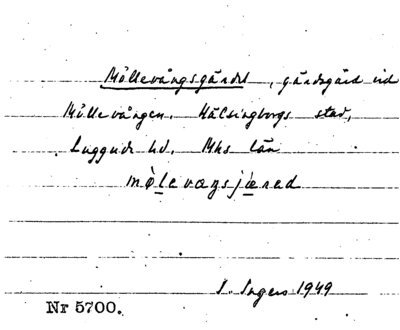 Möllevångsgärdet, gärdsgård vid
Möllevången. Hälsingborgs stad,
Luggude hd. Mhs län
mölevaŋsjæred
I. Ingers 1949
Nr 5700.